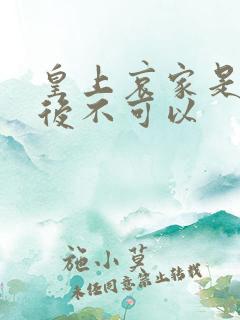 皇上哀家是
後不可以
施小莫
未经同意禁止转载